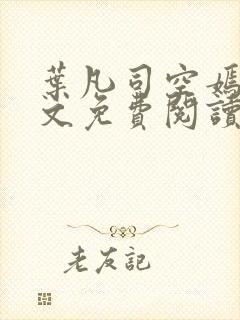 葉凡司空嫣
文免費閱讀
老友記